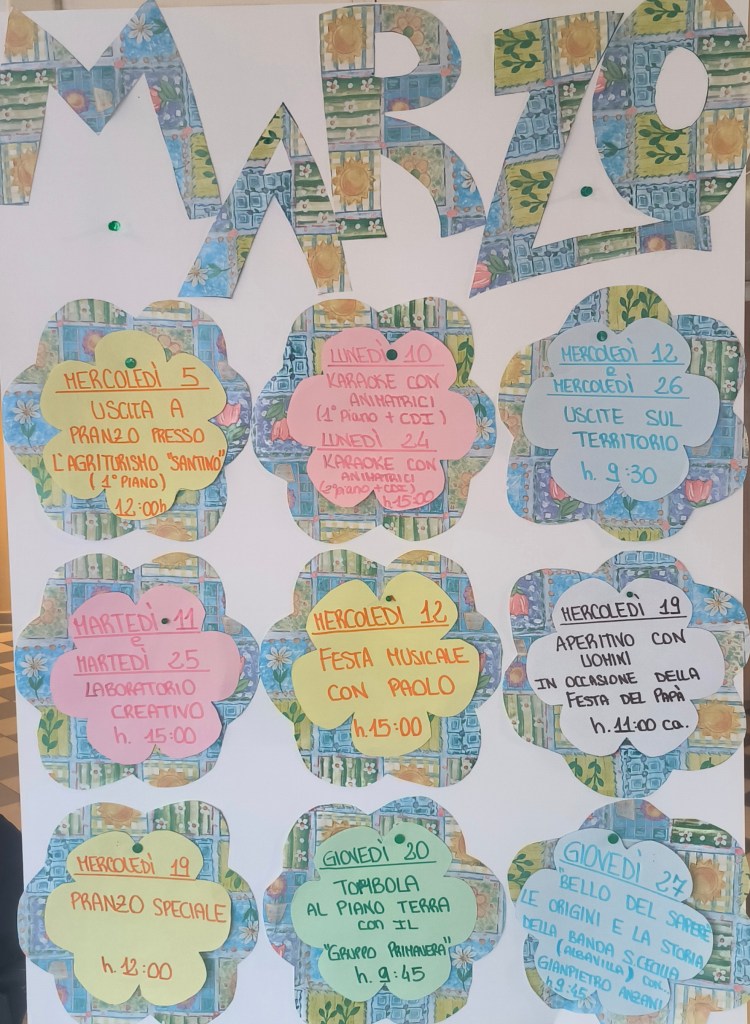 MARZO
MERCOLEDÌ 5
USCITA A
PRANZO PRESSO
L'AGRITURISMO "SANTINO"
(1° PIANO)
12:00h
LUNEDÌ 10
KARAOKE CON
ANIMATRICI
(1° Piano + CDI)
LUNEDÌ 24
KARAOKE CON
ANIMATRICI
(2° piano + CDI)
h. 15:00
MERCOLEDÌ 12
e
MERCOLEDÌ 26
USCITE SUL
TERRITORIO
h. 9:30
MARTEDÌ 11
e
MARTEDÌ 25
LABORATORIO
CREATIVO
h. 15:00
MERCOLEDÌ 12
FESTA MUSICALE
CON PAOLO
h. 15:00
MERCOLEDÌ 19
APERITIVO CON
UOMINI
IN OCCASIONE DELLA
FESTA DEL PAPÀ
h. 11:00 ca.
MERCOLEDÌ 19
PRANZO SPECIALE
h. 12:00
GIOVEDÌ 20
TOPIBOLA
AL PIANO TERRA
CON IL
"GRUPPO PRIMAVERA"
h. 9:45
GIOVEDÌ 27
"BELLO DEL SAPERE"
LE ORIGINI E LA STORIA
DELLA BANDA S. CECILIA
(ALBAVILLA) CON
GIANPIETRO ANZANI
h. 9:45